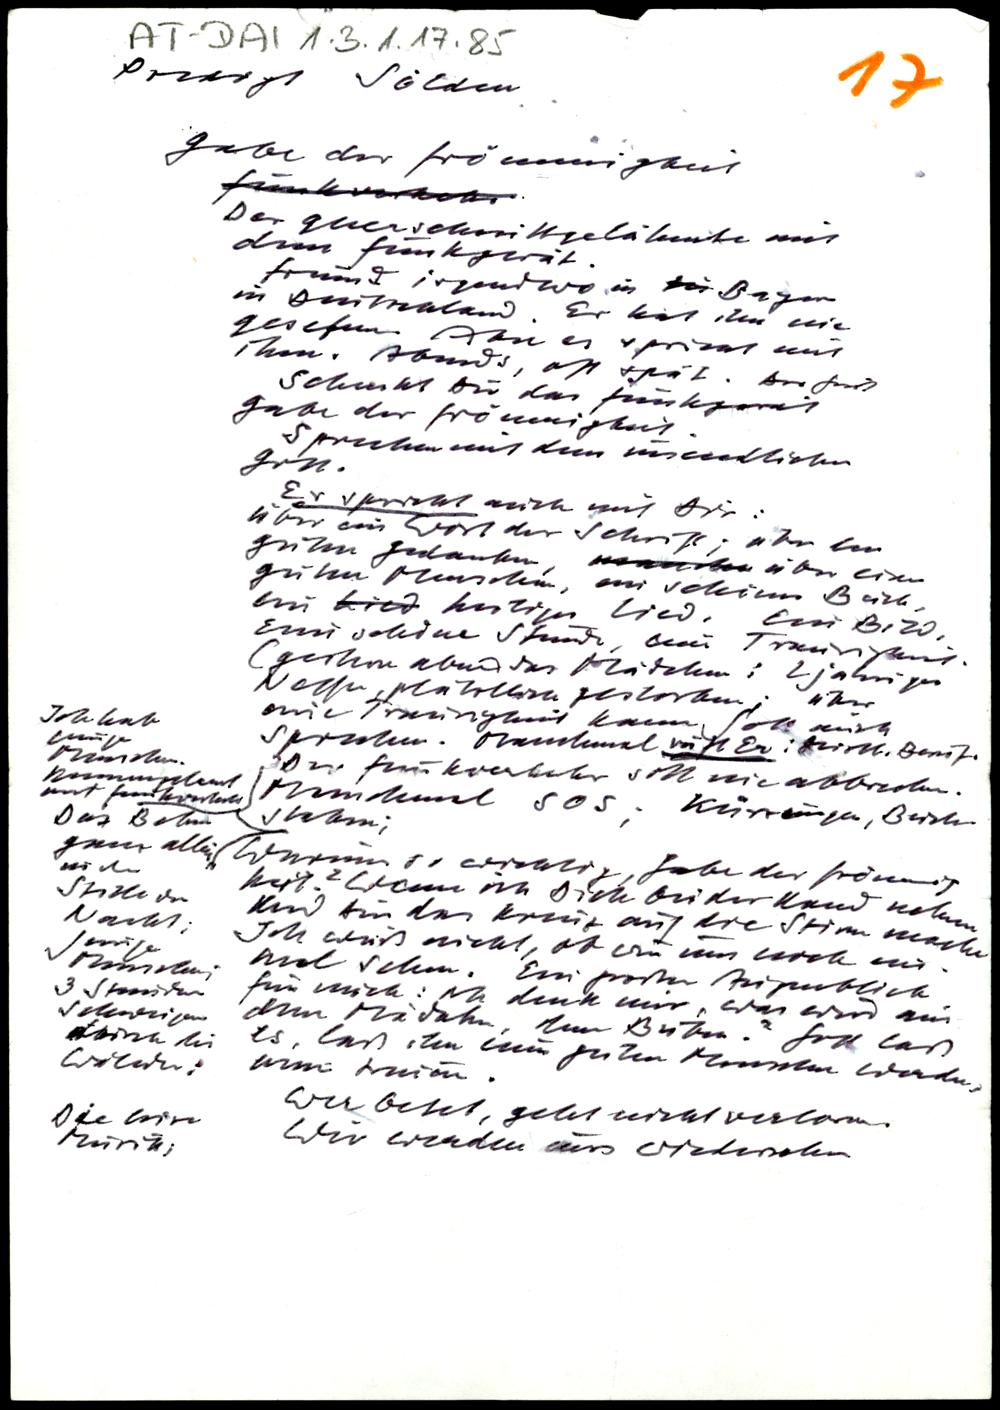 AT-DAI 1.3.1.17.85
17
Predigt Sölden
Gabe der Frömmigkeit
Funkverkehr.
Der Querschnittgelähmte mit
dem Funkgerät.
Freund irgendwo in Bayern
in Deutschland. Er hat ihn nie
gesehen. Aber er spricht mit
ihm. Abends, oft spät. Der Geist
Schenkt Dir das Funkgerät
Gabe der Frömmigkeit.
Sprechen mit dem unendlichen
Gott.
Er spricht auch mit Dir:
über ein Wort der Schrift; über den
guten Gedanken, über einen
guten Menschen, ein schönes Buch,
ein Lied heiliges Lied. Ein Bild.
Eine schöne Stunde, eine Traurigkeit.
(gestern abend das Mädchen: 2jähriger
Neffe, plötzlich gestorben; über
eine Traurigkeit kann Gott auch
sprechen. Manchmal ruft Er:
Der Funkverkehr soll nie abbrechen.
Manchmal SOS;
stehen;
Warum so wichtig, Gabe der Frömmig
keit? Wenn ich Dich bei der Hand nehme
Und Dir das Kreuz auf die Stirn mache
Ich weiß nicht, ob wir uns noch ein-
mal sehen. Ein großer Augenblick
für mich: Ich denk mir, was wird aus
dem Mädchen, dem Buben? Gott laß
es, laß ihn einen guten Menschen werden,
Wer betet, geht nicht verloren.
Wir werden uns wiedersehen
Ich hab
junge
Menschen
kennengelernt
mit Funkverkehr
Das Beten
ganz allein
in der
Stille der
Nacht;
junge
Menschen;
3 Stunden
Schweigen
durch die
Wälder:
Die leise
Musik;